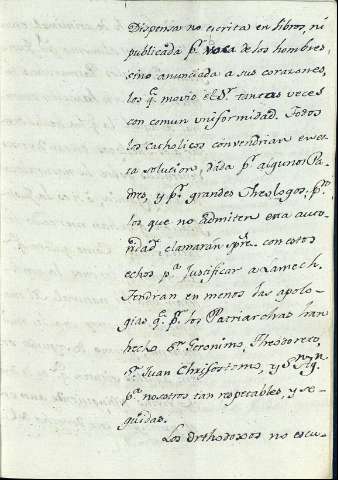 Dispensar no escrita en libros, ni
publicada pr. voca de los hombres,
sino anunciada a sus corazones,
los q. movio el Sr. tantas veces
con comun uniformidad. Todos
los catholicos convendrian en es-
ta solucion, dada pr. algunos Pa-
dres, y pr. grandes Theologos; pro.
los que no admiten esta auto-
ridad, clamaran spre. con estos
echos pa. Justificar a Lamech.
Tendran en menos las apolo-
gias q. pr. los Patriarchas han
hecho Sn. Geronimo, Theodoreto,
Sn. Juan Chrisostomo, y Sn. Agn.
pa. nosotros tan respetables, y se-
guidas.
Los orthodoxos no escu-